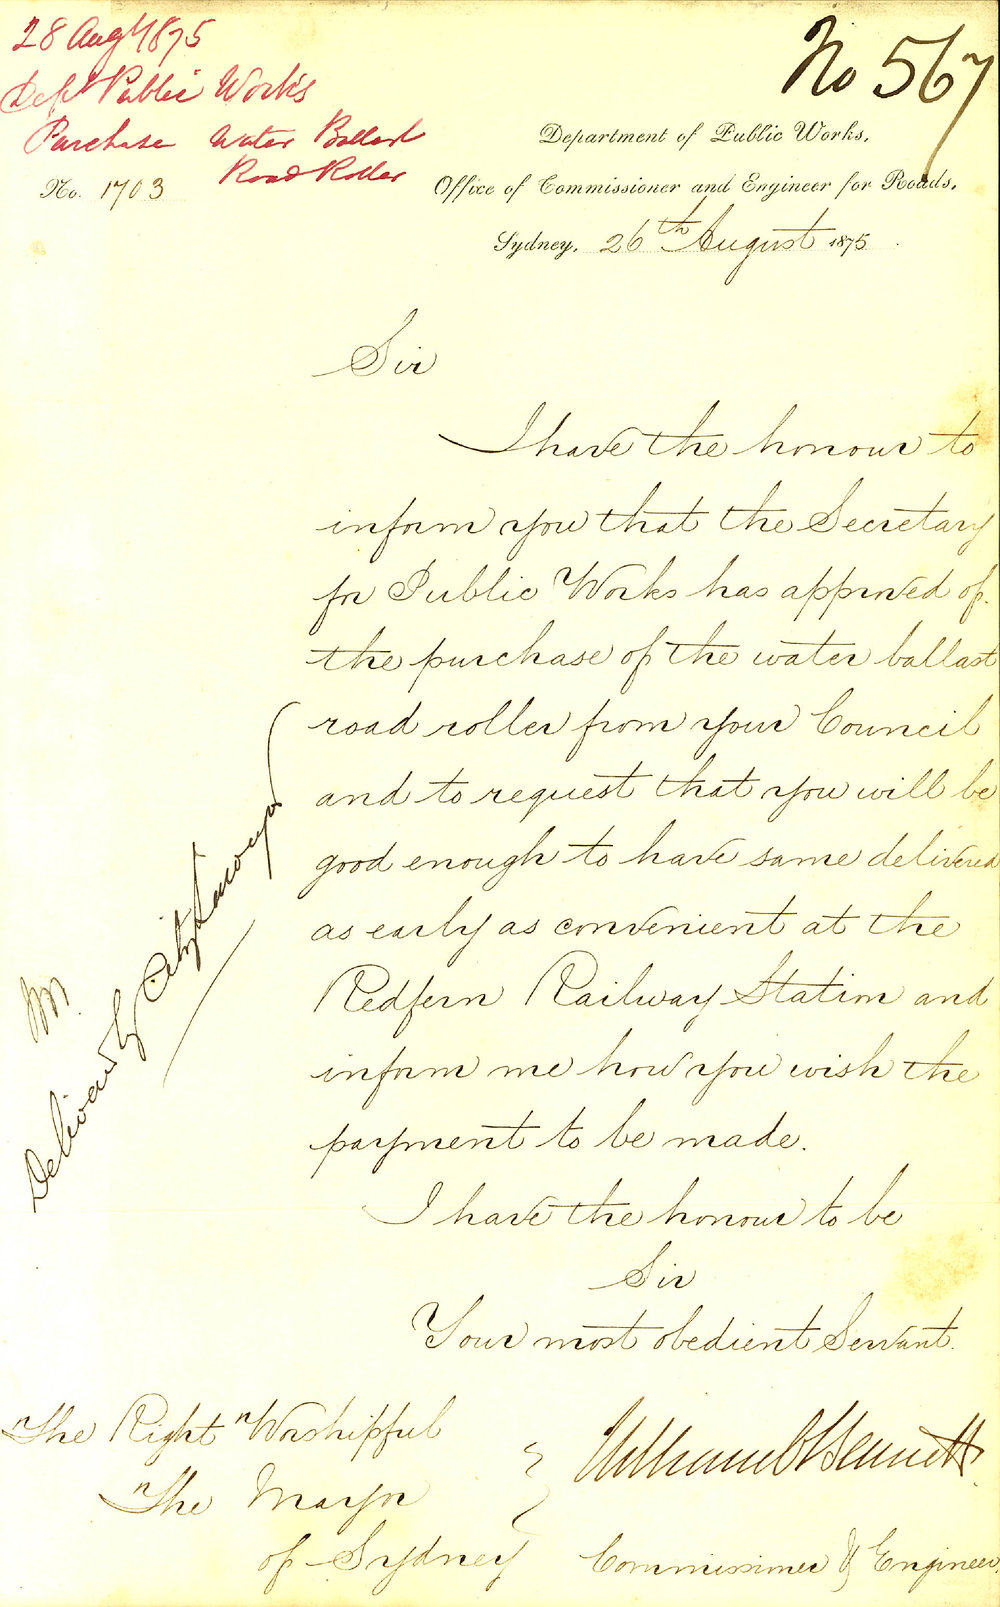 28 Augt 1875
Dept Public Works
Purchase Water Ballast
Road Roller
No 567
Department of Public Works.
Office of Commissioner and Engineer for Roads.
No. 1703
Sydney, 26th August 1875
Sir
I have the honour to
inform you that the Secretary
for Public Works has approved of
the purchase of the water ballast
road roller from your Council
and to request that you will be
good enough to have same delivered
as early as convenient at the
Redfern Railway Station and
inform me how you wish the
payment to be made.
I have the honour to be
Sir
Your most obedient Servant.
William C Bennett
Commissioner & Engineer
The Right Worshipful
The Mayor
of Sydney
Delivered by City Surveyor